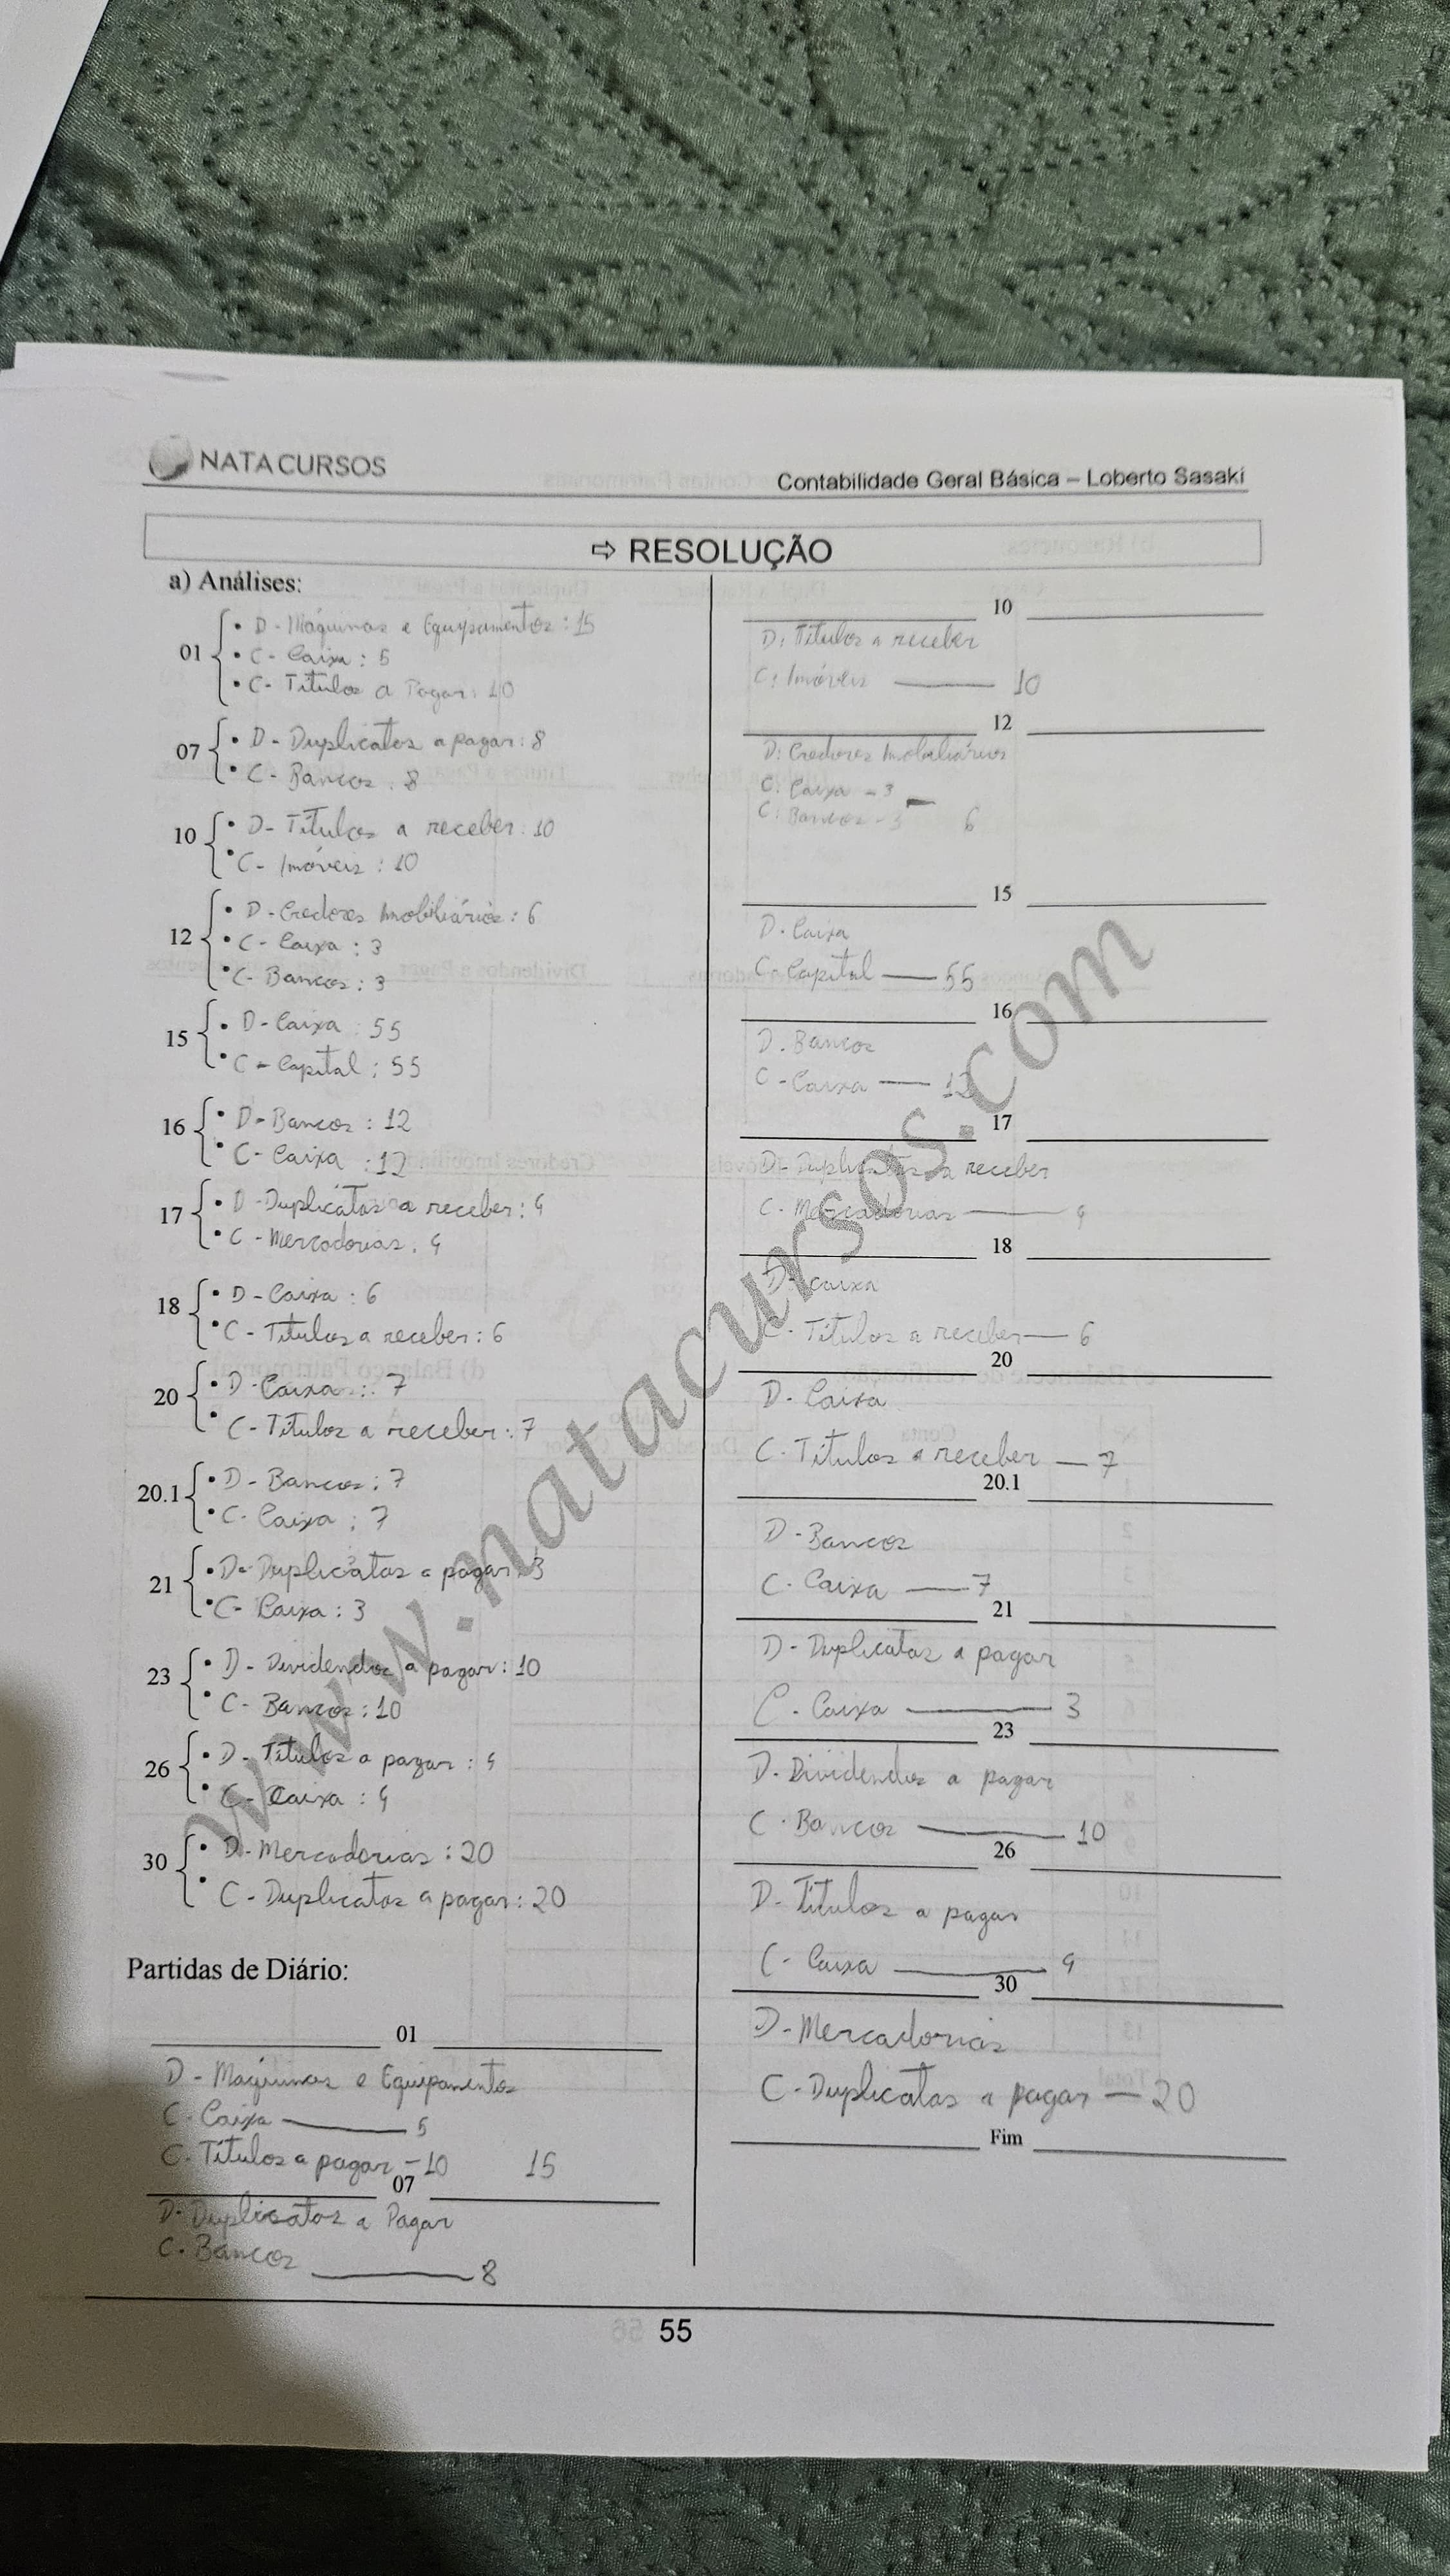 NATA CURSOS
Contabilidade Geral Básica – Loberto Sasaki
⇨ RESOLUÇÃO
a) Análises:
01
• D - Máquinas e Equipamentos : 15
• C - Caixa : 5
• C - Títulos a Pagar : 10
07
• D - Duplicatas a pagar : 8
• C - Bancos : 8
10
• D - Títulos a receber : 10
• C - Imóveis : 10
12
• D - Credores Imobiliários : 6
• C - Caixa : 3
• C - Bancos : 3
15
• D - Caixa : 55
• C - Capital : 55
16
• D - Bancos : 12
• C - Caixa : 12
17
• D - Duplicatas a receber : 4
• C - Mercadorias : 4
18
• D - Caixa : 6
• C - Títulos a receber : 6
20
• D - Caixa : 7
• C - Títulos a receber : 7
20.1
• D - Bancos : 7
• C - Caixa : 7
21
• D - Duplicatas a pagar : 3
• C - Caixa : 3
23
• D - Dividendos a pagar : 10
• C - Bancos : 10
26
• D - Títulos a pagar : 4
• C - Caixa : 4
30
• D - Mercadorias : 20
• C - Duplicatas a pagar : 20
Partidas de Diário:
01
D - Máquinas e Equipamentos
C - Caixa — 5
C - Títulos a pagar - 10 15
07
D - Duplicatas a Pagar
C - Bancos — 8
10
D: Títulos a receber
C: Imóveis — 10
12
D: Credores Imobiliários
C: Caixa - 3
C: Bancos - 3 — 6
15
D - Caixa
C - Capital — 55
16
D - Bancos
C - Caixa — 12
17
D - Duplicatas a receber
C - Mercadorias — 4
18
D - Caixa
C - Títulos a receber — 6
20
D - Caixa
C - Títulos a receber — 7
20.1
D - Bancos
C - Caixa — 7
21
D - Duplicatas a pagar
C - Caixa — 3
23
D - Dividendos a pagar
C - Bancos — 10
26
D - Títulos a pagar
C - Caixa — 4
30
D - Mercadorias
C - Duplicatas a pagar — 20
Fim
www.natacursos.com
55